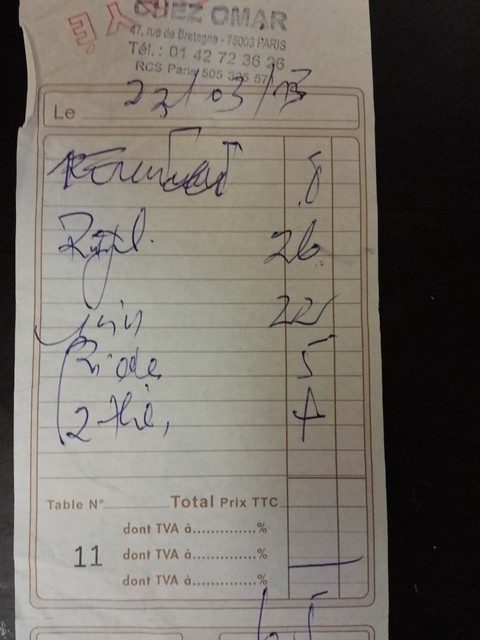 CHEZ OMAR
47, rue de Bretagne - 75003 PARIS
Tél. : 01 42 72 36 26
RCS Paris 505 335 57
Le 22/03/13
8
Royal. 26
22
5
2 thé, 4
Table N° Total Prix TTC
dont TVA à..............%
11 dont TVA à..............%
dont TVA à..............%
65